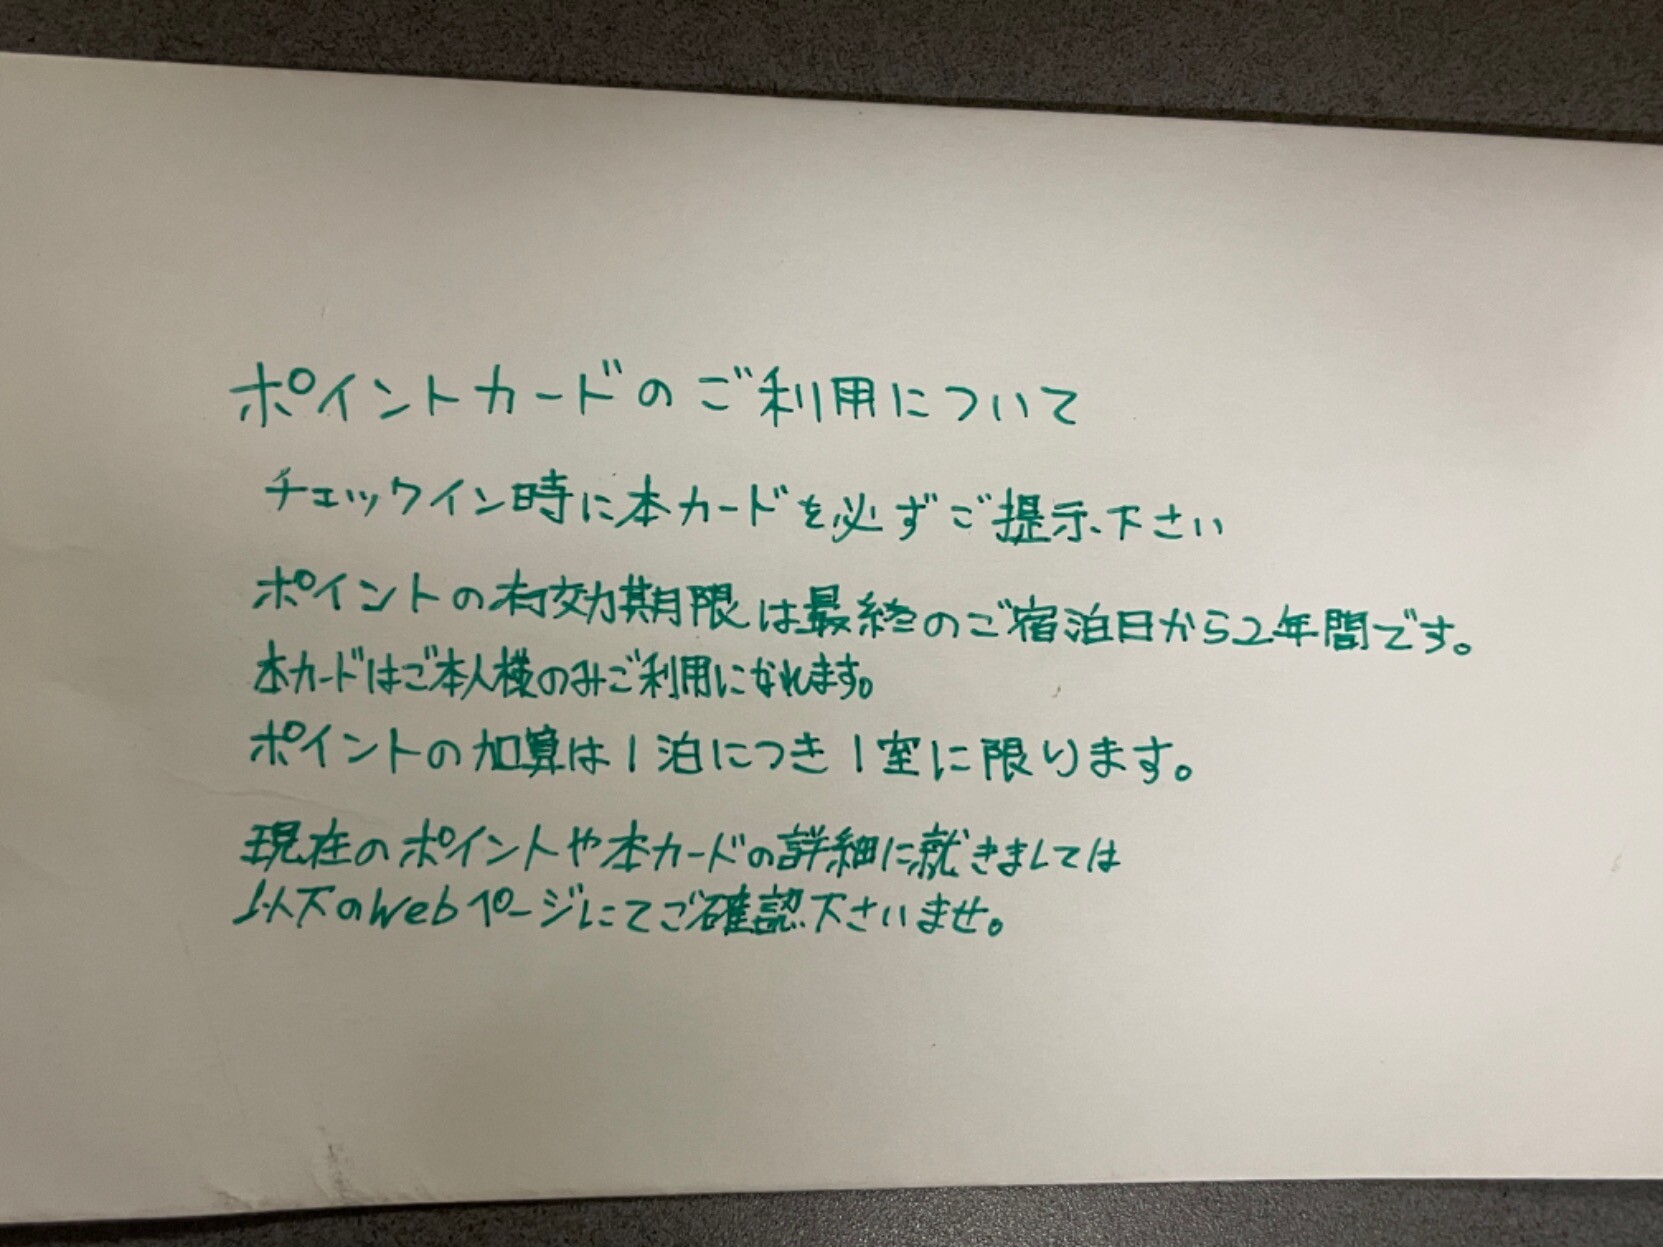 ポイントカードのご利用について
チェックイン時に本カードを必ずご提示下さい
ポイントの有効期限は最終のご宿泊日から2年間です。
本カードはご本人様のみご利用になれます。
ポイントの加算は1泊につき1室に限ります。
現在のポイントや本カードの詳細に就きましては
以下のWebページにてご確認下さいませ。